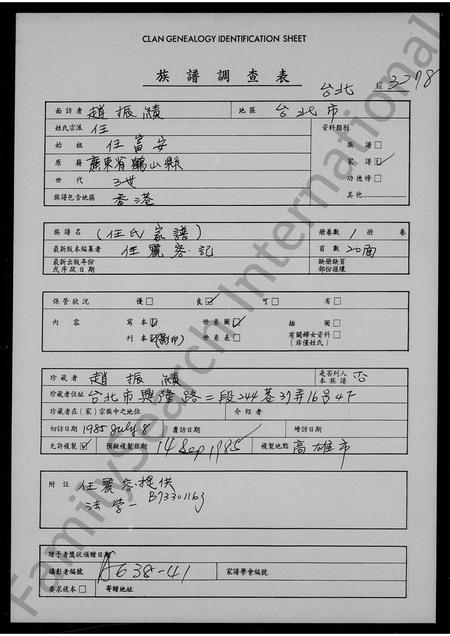 CLAN GENEALOGY IDENTIFICATION SHEET
族譜調查表
台北 3078
面訪者 趙振績 地區 台北市
姓氏宗派 任 資料類別
始祖 任富安 族譜□
原籍 廣東省鶴山縣 家譜☑
世代 3世 功德榜□
族譜包含地區 香港 其他
族譜名 (任氏家譜) 冊卷數 1 冊 卷
最新版本編纂者 任麗容.記 頁數 20面
最新出版年份 或序跋日期 缺册缺頁 部份損壞
保管狀況 優□ 良☑ 可□ 劣□
內容 寫本☑ 世系圖☑ 插圖□
刊本☑(影印) 世系表□ 有關婦女資料□ (非僅姓氏)
珍藏者 趙振績 是否列入本族譜 否
珍藏者住址 台北市興隆路二段244巷37弄16号4F
珍藏者在(家)宗族中之地位 介紹者
初訪日期 1985 July 8 覆訪日期 續訪日期
允許複製☑ 擬複製日期 14 Sep 1985 複製地點 高雄市
附註 任麗容.提供
法學一 B73301163
贈予者獎狀頒贈日期
攝影者編號 A638-41 家譜學會編號
要求複本□ 寄贈地址
FamilySearch International